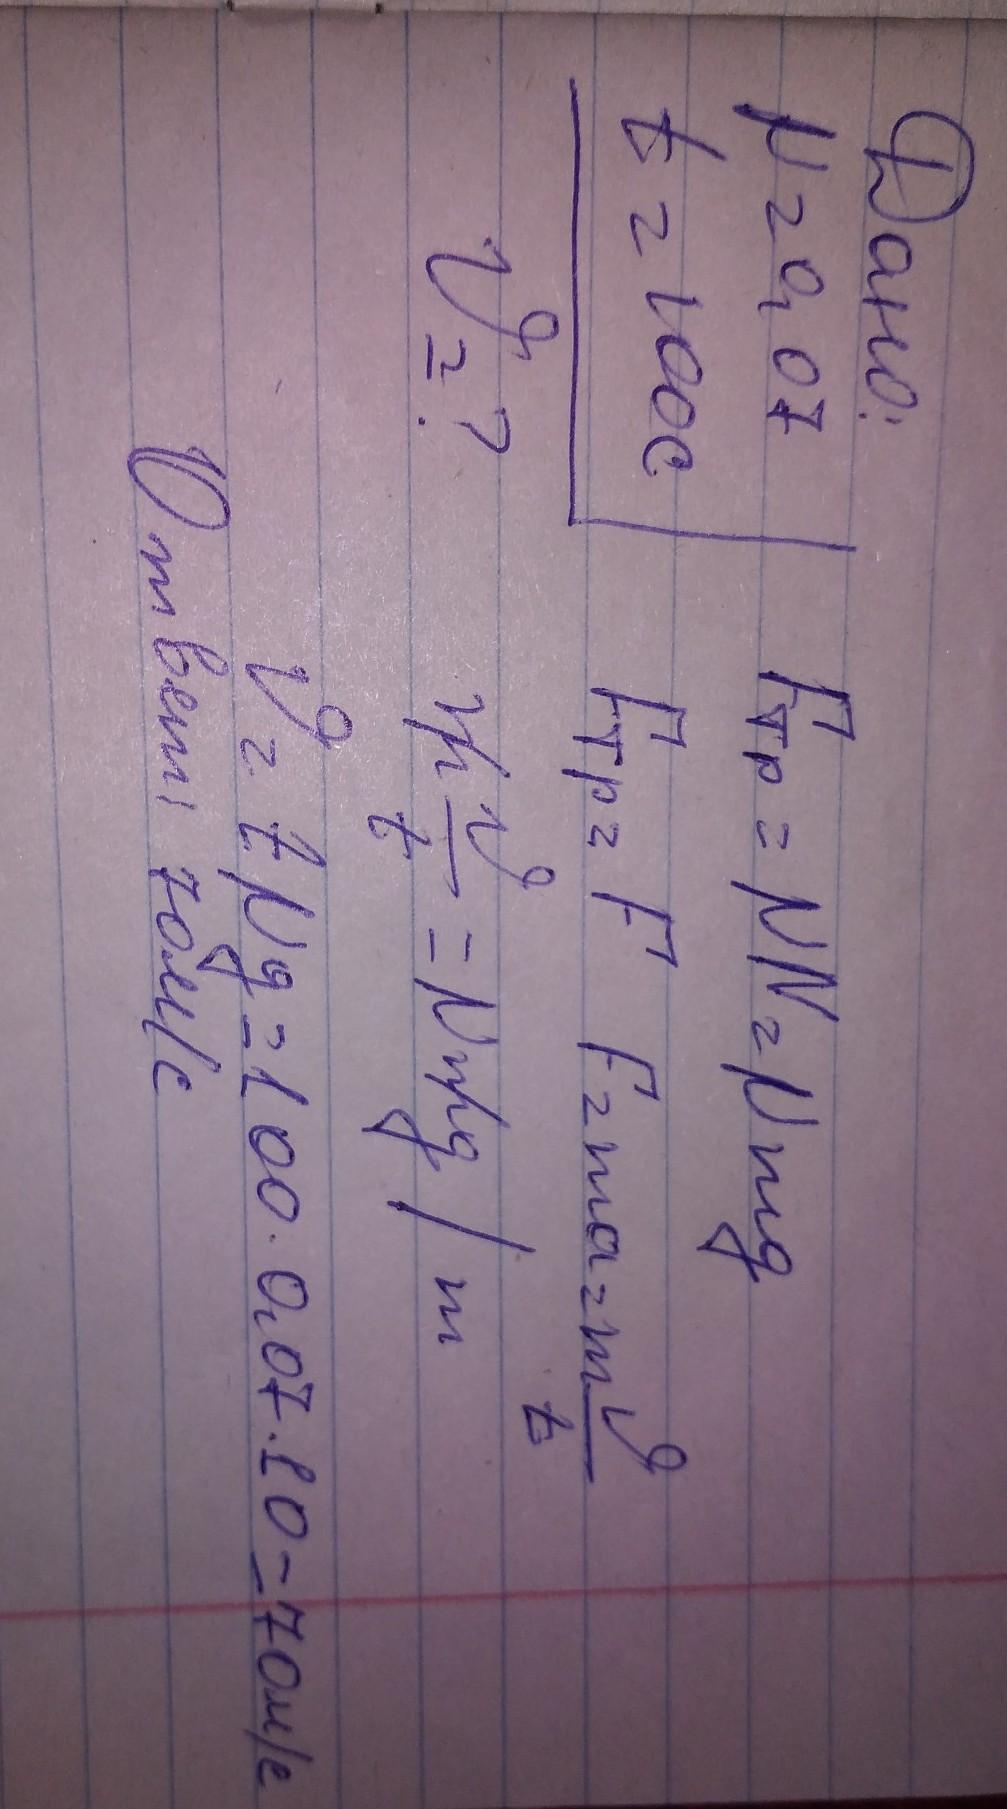 Дано:
μ = 0,07
t = 100с
V = ?
Fтр = μN = μmg
Fтр = F F = ma = m V/t
m V/t = μmg / m
V = tμg = 100 · 0,07 · 10 = 70м/с
Ответ: 70м/с